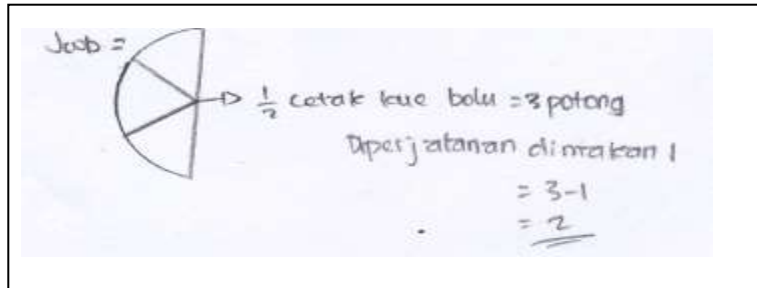 Jwb =
1/2 cetak kue bolu = 3 potong
Diperjalanan dimakan 1
= 3-1
= 2